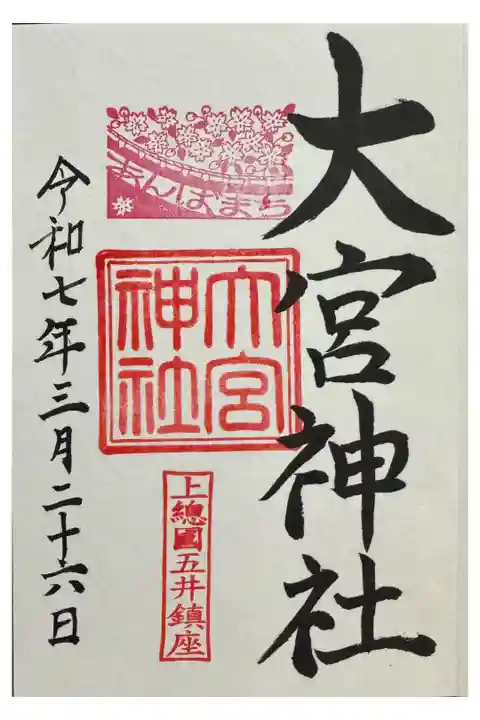 大宮神社
さんばまち
大宮
神社
上總國五井鎮座
令和七年三月二十六日